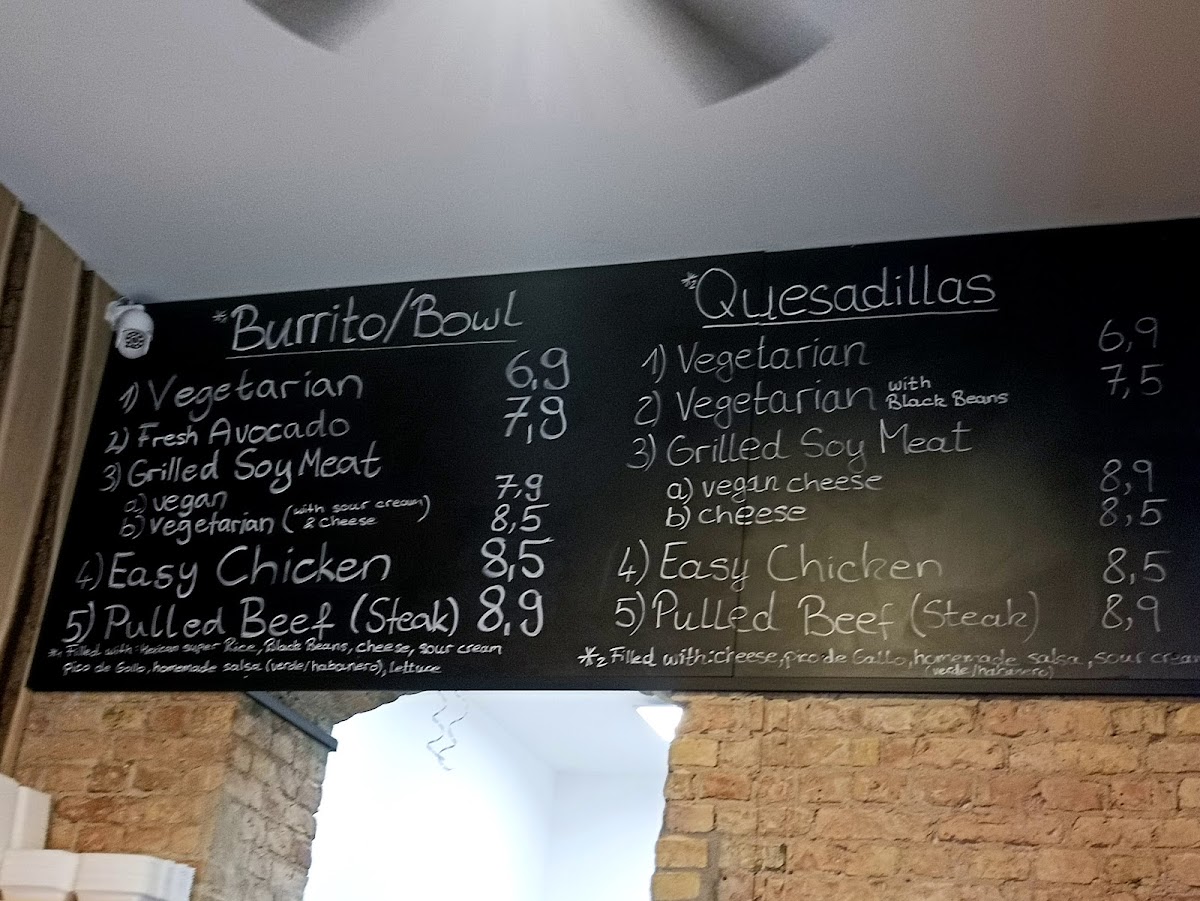 * Burrito/Bowl
1) Vegetarian 6,9
2) Fresh Avocado 7,9
3) Grilled Soy Meat
a) vegan 7,9
b) vegetarian (with sour cream & cheese) 8,5
4) Easy Chicken 8,5
5) Pulled Beef (Steak) 8,9
*1 Filled with: Mexican super Rice, Black Beans, cheese, sour cream
pico de Gallo, homemade salsa (verde/habanero), lettuce
*2 Quesadillas
1) Vegetarian 6,9
2) Vegetarian with Black Beans 7,5
3) Grilled Soy Meat
a) vegan cheese 8,9
b) cheese 8,5
4) Easy Chicken 8,5
5) Pulled Beef (Steak) 8,9
*2 Filled with: cheese, pico de Gallo, homemade salsa, sour cream
(verde/habanero)